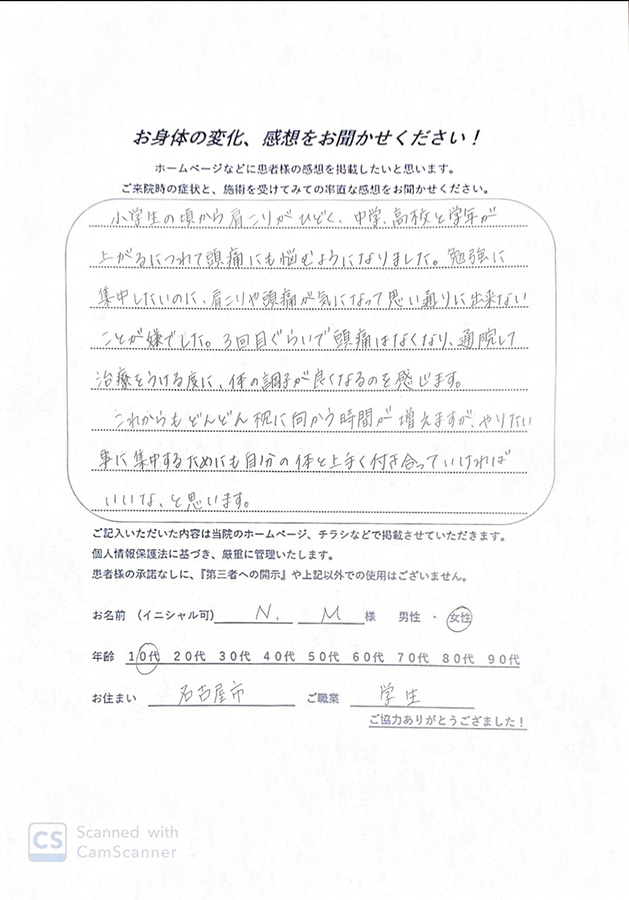 お身体の変化、感想をお聞かせください！
ホームページなどに患者様の感想を掲載したいと思います。
ご来院時の症状と、施術を受けてみての率直な感想をお聞かせください。
小学生の頃から肩こりがひどく、中学、高校と学年が
上がるにつれて頭痛にも悩むようになりました。勉強に
集中したいのに、肩こりや頭痛が気になって思い通りに出来ない
ことが嫌でした。3回目ぐらいで頭痛はなくなり、通院して
治療をうける度に、体の調子が良くなるのを感じます。
これからもどんどん机に向かう時間が増えますが、やりたい
事に集中するためにも自分の体と上手く付き合っていければ
いいな、と思います。
ご記入いただいた内容は当院のホームページ、チラシなどで掲載させていただきます。
個人情報保護法に基づき、厳重に管理いたします。
患者様の承諾なしに、『第三者への開示』や上記以外での使用はございません。
お名前 （イニシャル可） N. M 様 男性 ・ 女性
年齢 10代 20代 30代 40代 50代 60代 70代 80代 90代
お住まい 名古屋市 ご職業 学生
ご協力ありがとうござました！
CS Scanned with
CamScanner